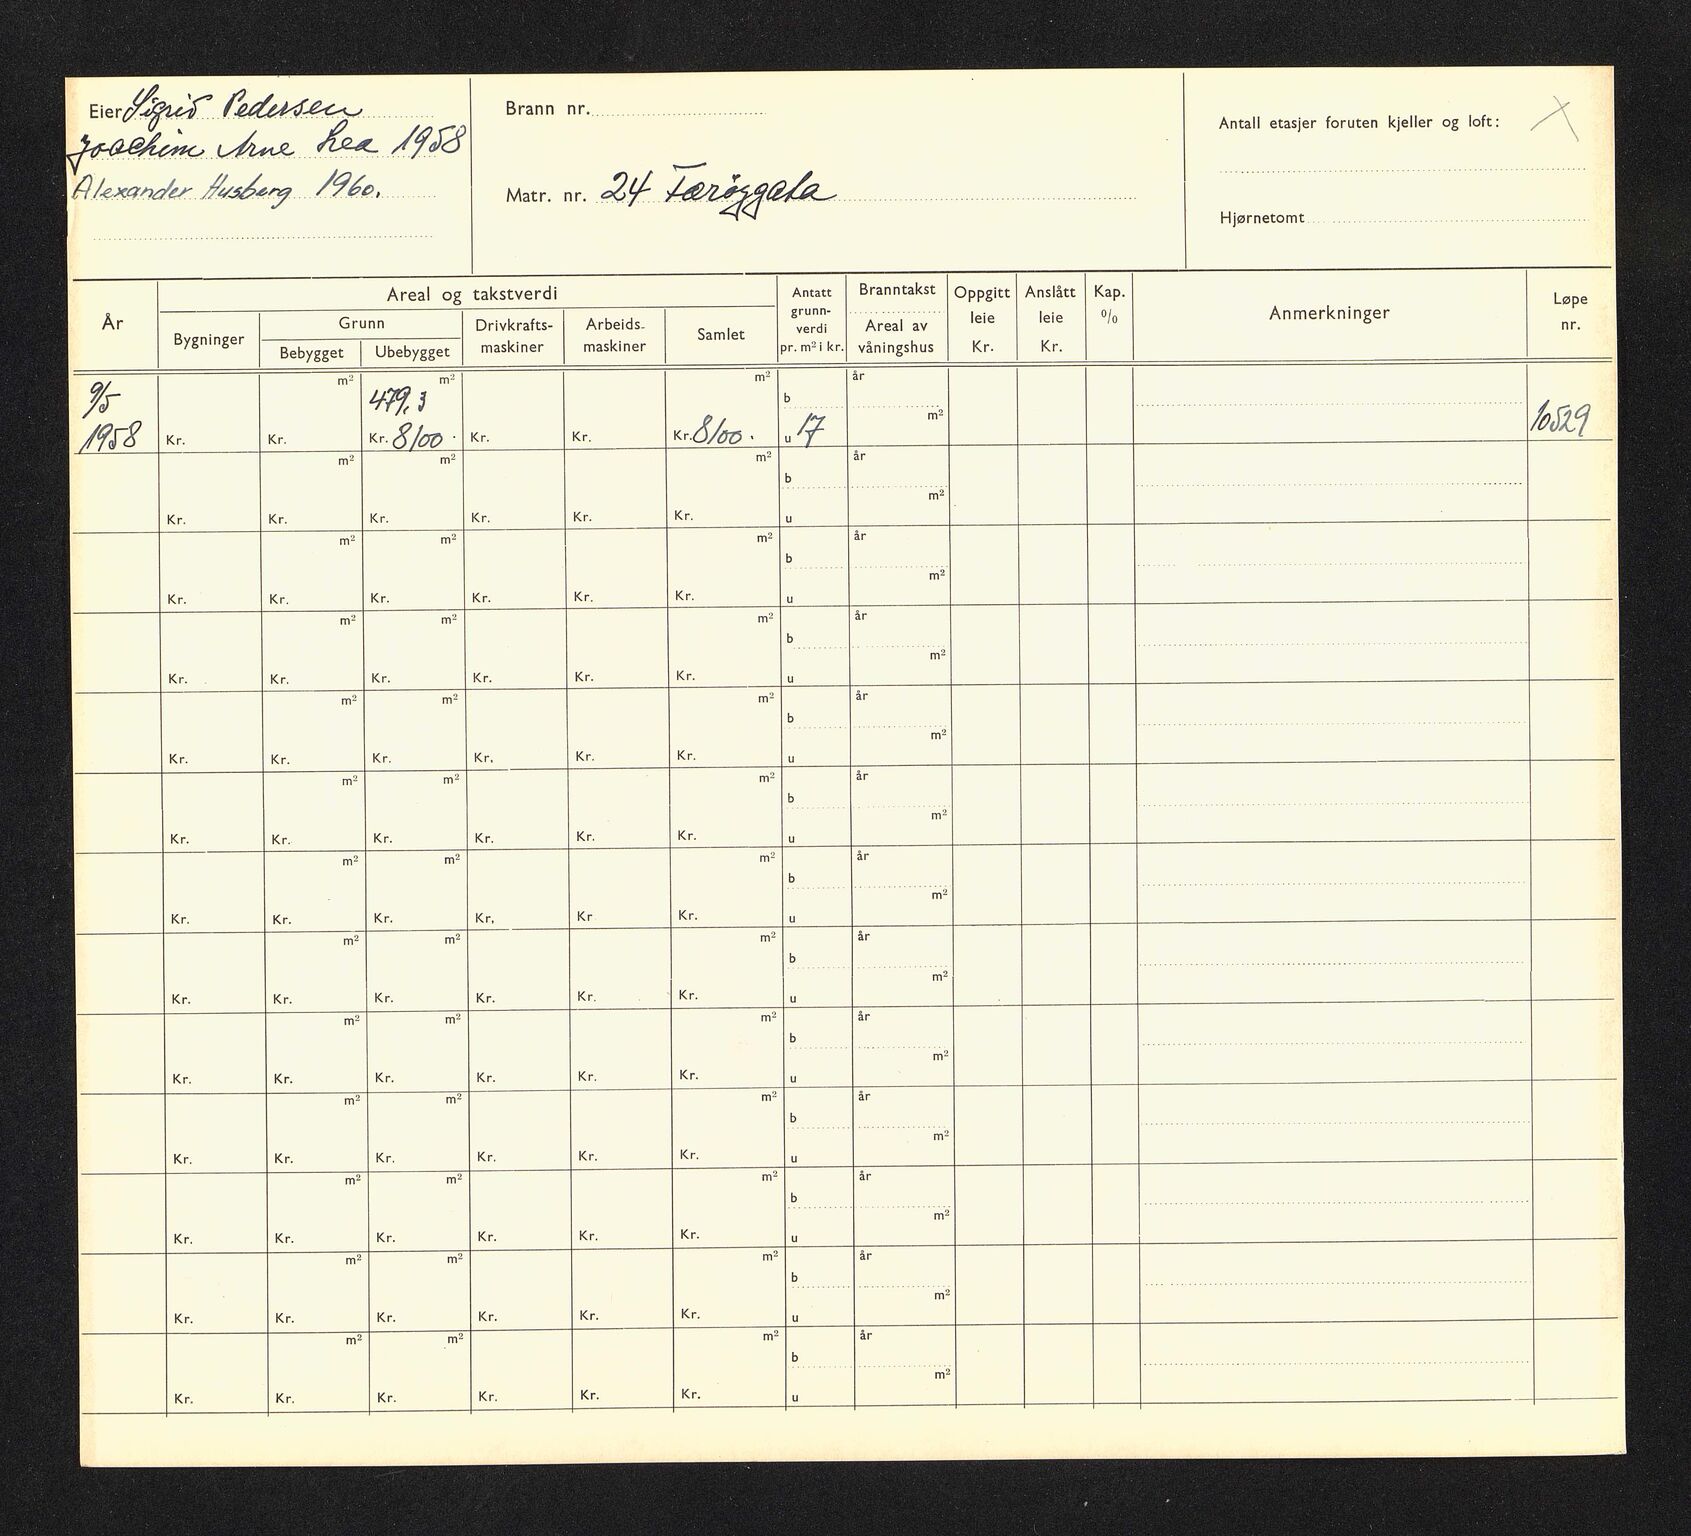 Eier Sigrid Pedersen
Joachim Arne Lea 1958
Alexander Husberg 1960.
Brann nr.
Matr. nr. 24 Færøygata
Antall etasjer foruten kjeller og loft:
Hjørnetomt
År
Areal og takstverdi
Bygninger
Grunn
Bebygget Ubebygget
Drivkrafts-
maskiner
Arbeids-
maskiner
Samlet
Antatt
grunn-
verdi
pr. m² i kr.
Branntakst
Areal av
våningshus
Oppgitt
leie
Kr.
Anslått
leie
Kr.
Kap.
%
Anmerkninger
Løpe
nr.
m² m² m² år
9/5 479,3 b m²
1958 Kr. Kr. Kr. 8100. Kr. Kr. Kr. 8100. u 17 10529
m² m² m² år
b m²
Kr. Kr. Kr. Kr. Kr. Kr. u
m² m² m² år
b m²
Kr. Kr. Kr. Kr. Kr. Kr. u
m² m² m² år
b m²
Kr. Kr. Kr. Kr. Kr. Kr. u
m² m² m² år
b m²
Kr. Kr. Kr. Kr. Kr. Kr. u
m² m² m² år
b m²
Kr. Kr. Kr. Kr. Kr. Kr. u
m² m² m² år
b m²
Kr. Kr. Kr. Kr. Kr Kr. u
m² m² m² år
b m²
Kr. Kr. Kr. Kr. Kr. Kr. u
m² m² m² år
b m²
Kr. Kr. Kr. Kr. Kr. Kr. u
m² m² m² år
b m²
Kr. Kr. Kr. Kr. Kr. Kr. u
m² m² m² år
b m²
Kr. Kr. Kr. Kr. Kr. Kr. u
m² m² m² år
b m²
Kr. Kr. Kr. Kr. Kr. Kr. u
m² m² m² år
b m²
Kr. Kr. Kr. Kr. Kr. Kr. u